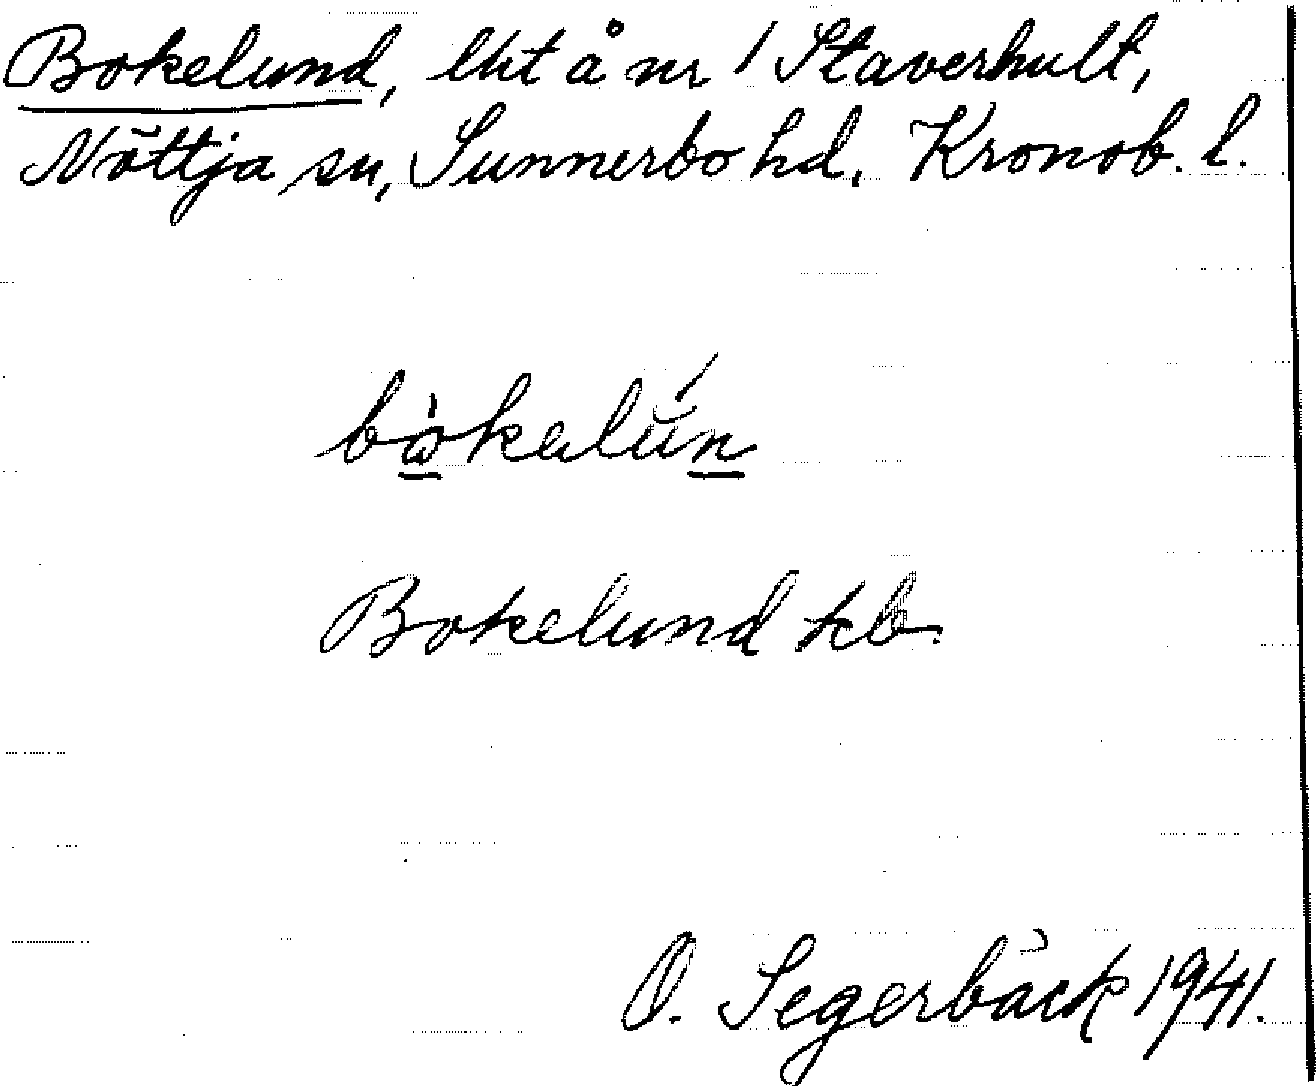 Bokelund, lht å nr 1 Staverhult,
Nöttja sn, Sunnerbo hd, Kronob. l.
bòkelún
Bokelund kb.
O. Segerbäck 1941.